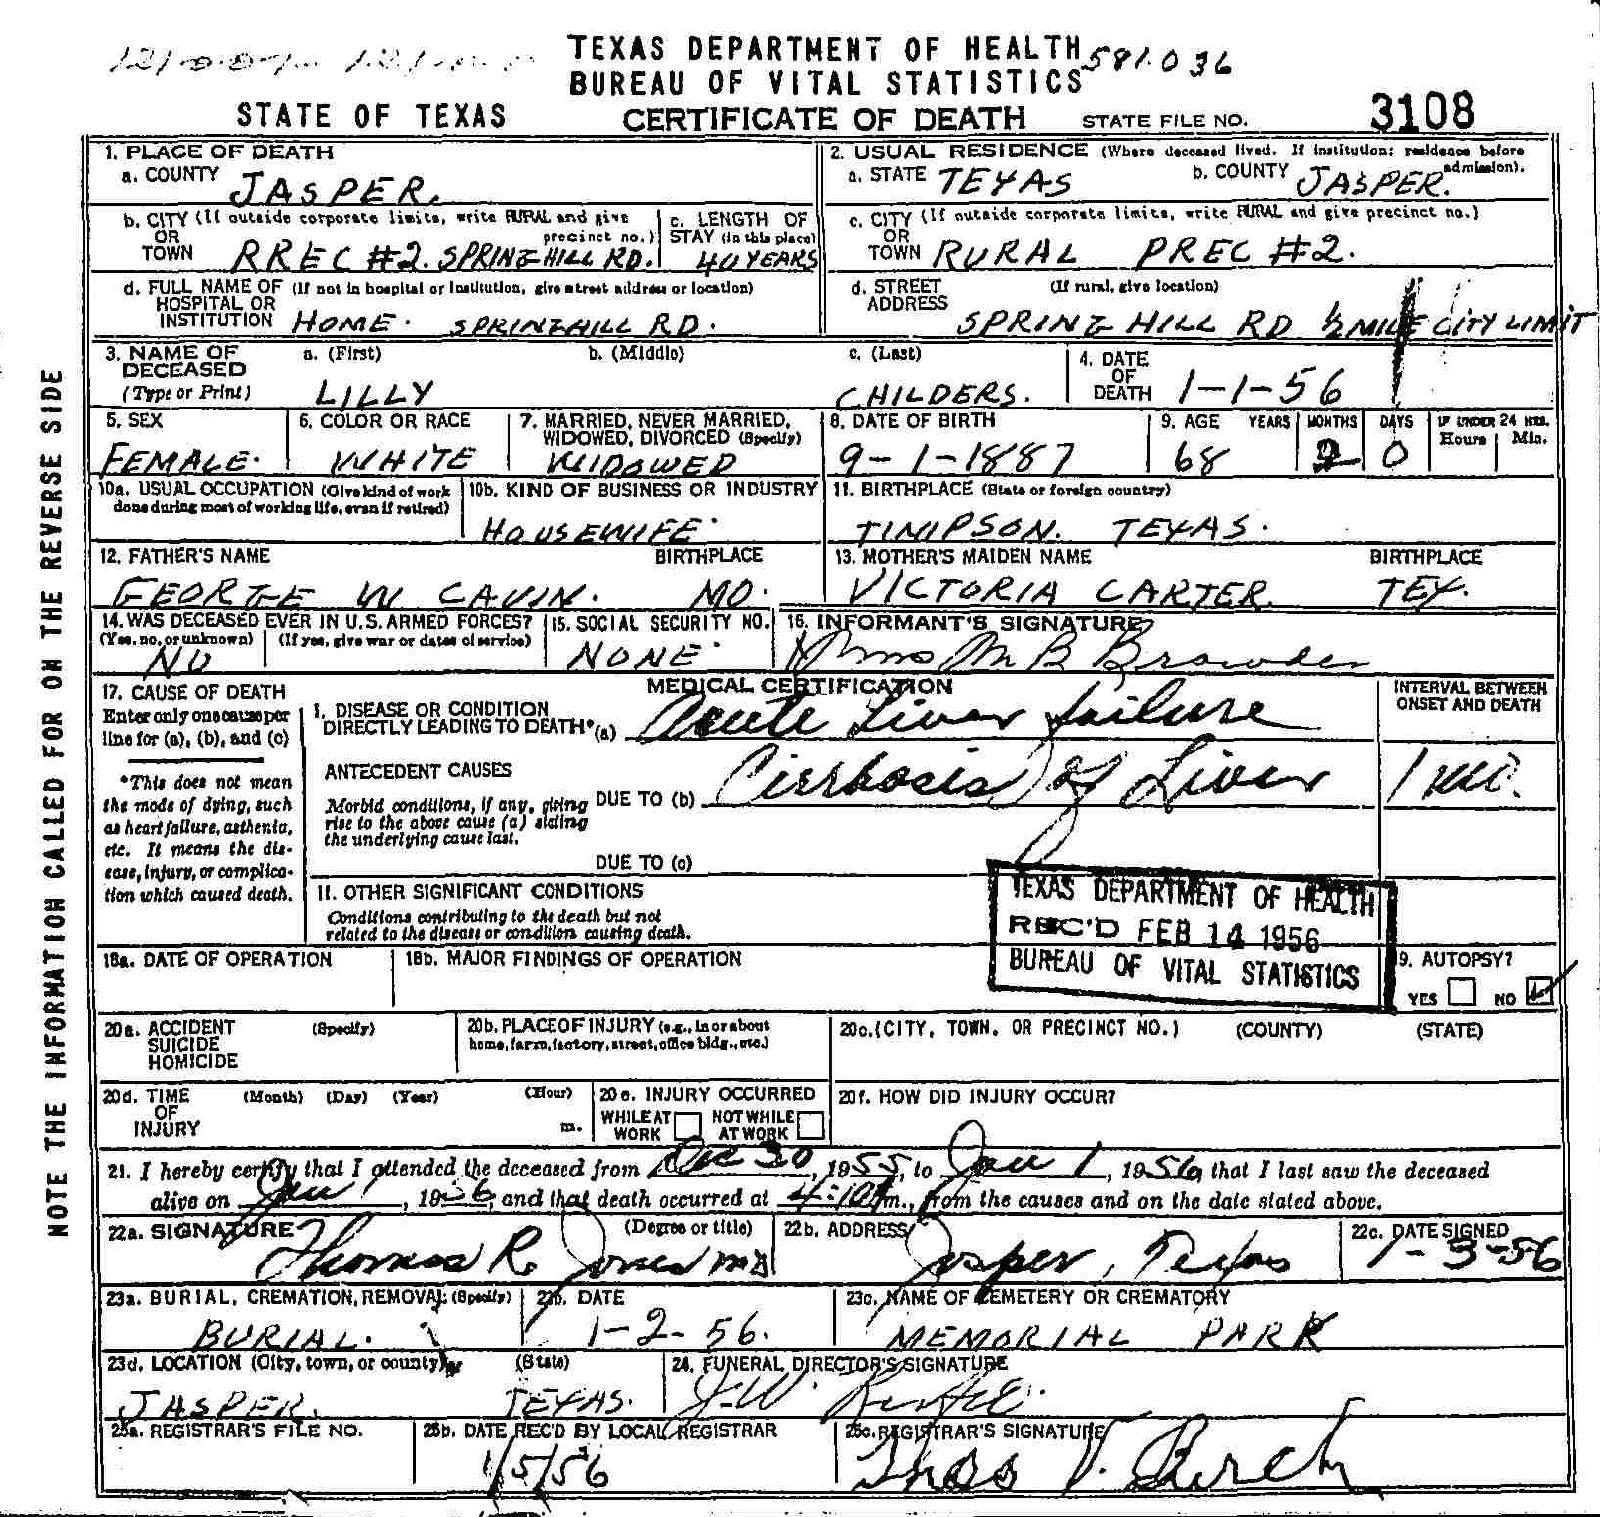 TEXAS DEPARTMENT OF HEALTH
581036
BUREAU OF VITAL STATISTICS
STATE OF TEXAS CERTIFICATE OF DEATH STATE FILE NO. 3108
NOTE THE INFORMATION CALLED FOR ON THE REVERSE SIDE
1. PLACE OF DEATH
a. COUNTY JASPER.
2. USUAL RESIDENCE (Where deceased lived. If institution: residence before admission).
a. STATE TEXAS b. COUNTY JASPER.
b. CITY (If outside corporate limits, write RURAL and give precinct no.)
OR
TOWN RREC #2. SPRING HILL RD.
c. LENGTH OF
STAY (in this place)
40 YEARS
c. CITY (If outside corporate limits, write RURAL and give precinct no.)
OR
TOWN RURAL PREC #2.
d. FULL NAME OF (If not in hospital or institution, give street address or location)
HOSPITAL OR
INSTITUTION HOME. SPRINGHILL RD.
d. STREET (If rural, give location)
ADDRESS
SPRING HILL RD ½ MILE CITY LIMIT
3. NAME OF a. (First) b. (Middle) c. (Last)
DECEASED
(Type or Print) LILLY CHILDERS.
4. DATE
OF
DEATH 1-1-56
5. SEX
FEMALE.
6. COLOR OR RACE
WHITE
7. MARRIED, NEVER MARRIED,
WIDOWED, DIVORCED (Specify)
WIDOWED
8. DATE OF BIRTH
9-1-1887
9. AGE YEARS MONTHS DAYS IF UNDER 24 HRS.
Hours Min.
68 0
10a. USUAL OCCUPATION (Give kind of work
done during most of working life, even if retired)
10b. KIND OF BUSINESS OR INDUSTRY
HOUSEWIFE.
11. BIRTHPLACE (State or foreign country)
TIMPSON. TEXAS.
12. FATHER'S NAME BIRTHPLACE
GEORGE W CAVIN. MO.
13. MOTHER'S MAIDEN NAME BIRTHPLACE
VICTORIA CARTER. TEX.
14. WAS DECEASED EVER IN U.S. ARMED FORCES?
(Yes, no, or unknown) (If yes, give war or dates of service)
NO
15. SOCIAL SECURITY NO.
NONE.
16. INFORMANT'S SIGNATURE
Mrs M B Browder
17. CAUSE OF DEATH
Enter only one cause per
line for (a), (b), and (c)
*This does not mean
the mode of dying, such
as heart failure, asthenia,
etc. It means the dis-
ease, injury, or complica-
tion which caused death.
MEDICAL CERTIFICATION
INTERVAL BETWEEN
ONSET AND DEATH
I. DISEASE OR CONDITION
DIRECTLY LEADING TO DEATH* (a) Acute Liver failure
ANTECEDENT CAUSES
Morbid conditions, if any, giving
rise to the above cause (a) stating
the underlying cause last.
DUE TO (b) Cirrhosis of Liver
DUE TO (c)
II. OTHER SIGNIFICANT CONDITIONS
Conditions contributing to the death but not
related to the disease or condition causing death.
TEXAS DEPARTMENT OF HEALTH
REC'D FEB 14 1956
BUREAU OF VITAL STATISTICS
18a. DATE OF OPERATION
18b. MAJOR FINDINGS OF OPERATION
19. AUTOPSY?
YES NO
20a. ACCIDENT (Specify)
SUICIDE
HOMICIDE
20b. PLACE OF INJURY (e.g., in or about
home, farm, factory, street, office bldg., etc.)
20c. (CITY, TOWN, OR PRECINCT NO.) (COUNTY) (STATE)
20d. TIME (Month) (Day) (Year) (Hour)
OF
INJURY m.
20e. INJURY OCCURRED
WHILE AT WORK NOT WHILE AT WORK
20f. HOW DID INJURY OCCUR?
21. I hereby certify that I attended the deceased from Dec 30, 1955, to Jan 1, 1956, that I last saw the deceased
alive on Jan 1, 1956, and that death occurred at 4:10 m., from the causes and on the date stated above.
22a. SIGNATURE (Degree or title)
Thomas R. Jones MD
22b. ADDRESS
Jasper, Texas
22c. DATE SIGNED
1-3-56
23a. BURIAL, CREMATION, REMOVAL (Specify)
BURIAL.
23b. DATE
1-2-56.
23c. NAME OF CEMETERY OR CREMATORY
MEMORIAL PARK
23d. LOCATION (City, town, or county) (State)
JASPER. TEXAS.
24. FUNERAL DIRECTOR'S SIGNATURE
J.W.
25a. REGISTRAR'S FILE NO.
25b. DATE REC'D BY LOCAL REGISTRAR
1/5/56
25c. REGISTRAR'S SIGNATURE
Thos V. Burch